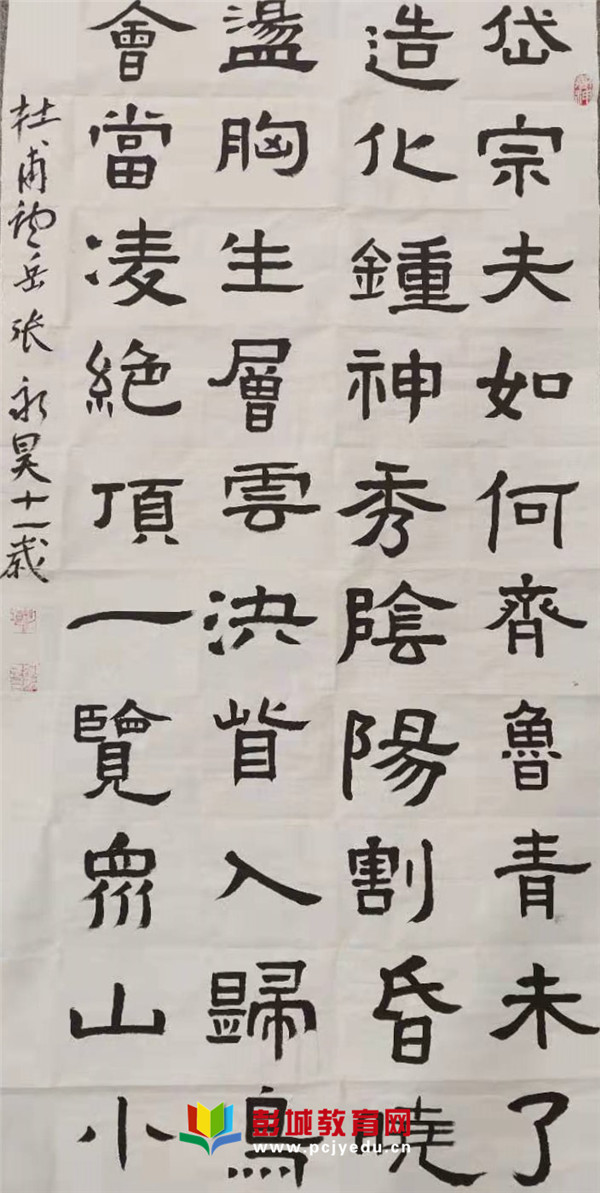 岱宗夫如何齊魯青未了
造化鍾神秀陰陽割昏曉
盪胸生層雲決眥入歸鳥
會當凌絕頂一覽衆山小
杜甫望岳張永昊十一歲
彭城教育网
www.pcjyedu.cn